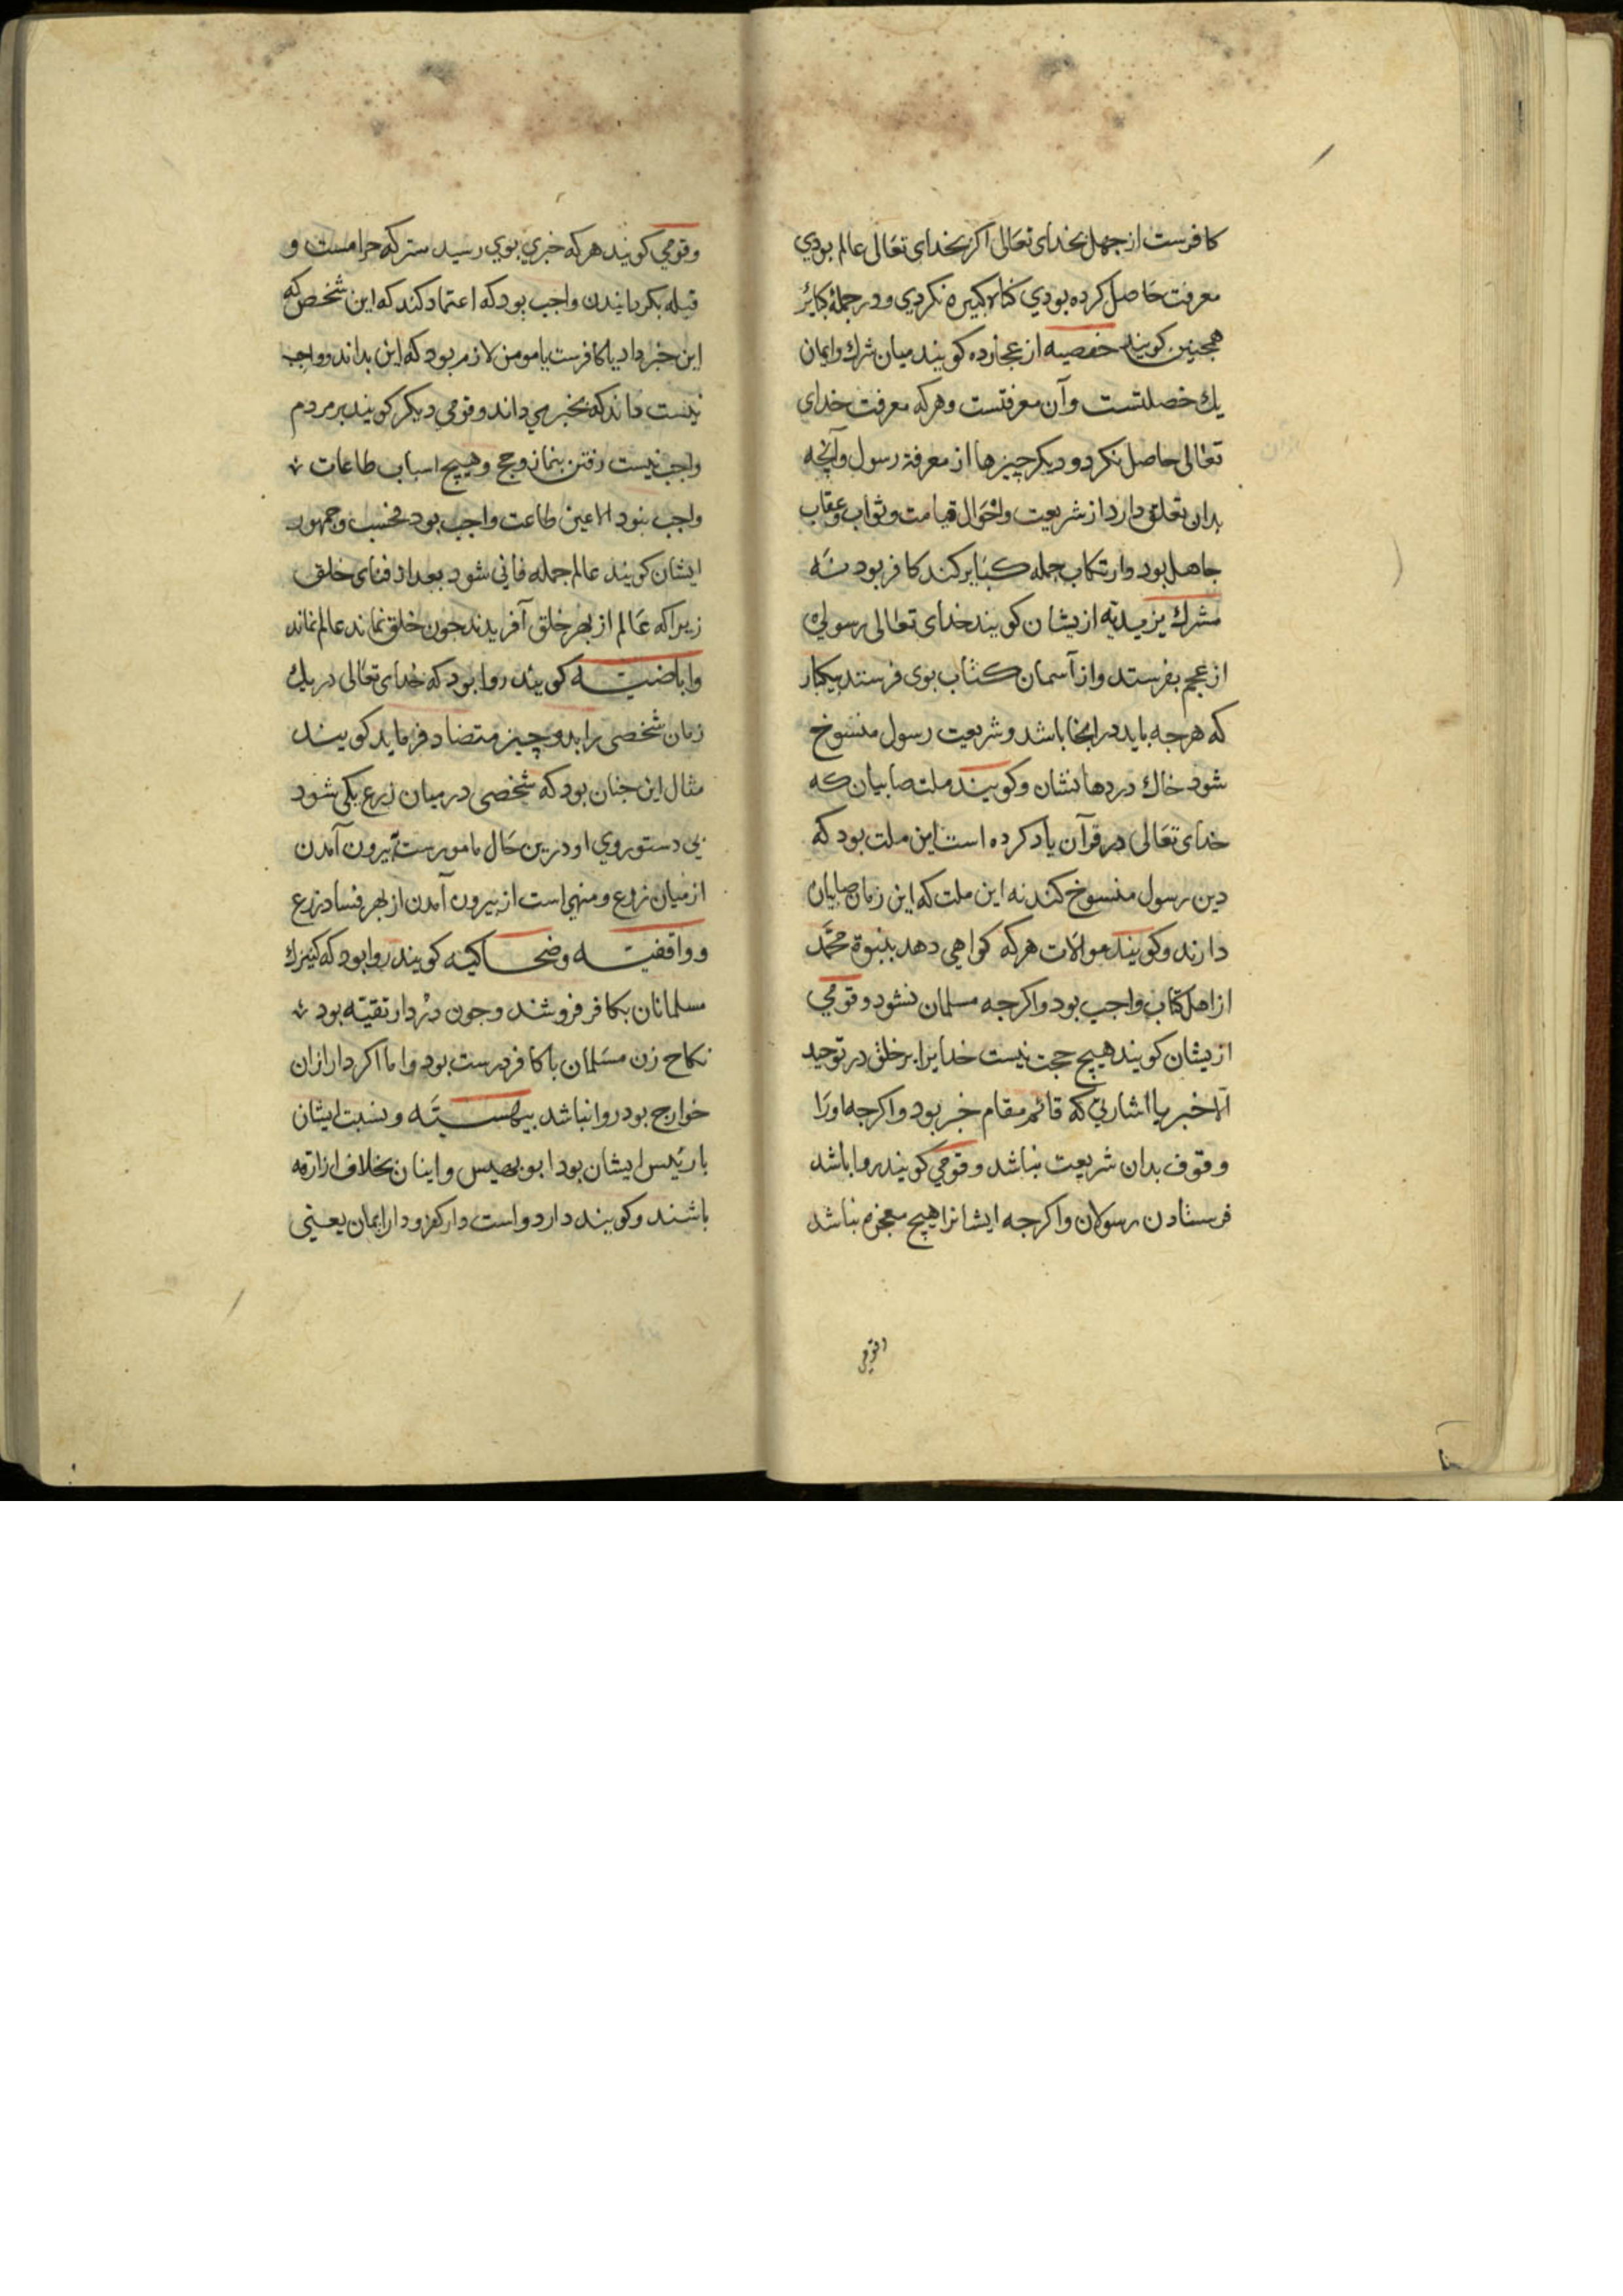 كافرست از جهل بخدای تعالی اكر بخدای تعالی عالم بودي
معرفت حاصل كرده بودي كناه كبيره نكردي و در جملهٔ كبائر
همجنين كويند حفصيه از عجارده كويند ميان شرك و ايمان
يك خصلتست و آن معرفتست و هركه معرفت خدای
تعالی حاصل نكرد و ديكر چيزها از معرفة رسول و آنچه
بدان تعلق دارد از شريعت و احوال قيامت و ثواب و عقاب
جاهل بود و ارتكاب جمله كبایر كند كافر بود نه
مشرك يزيديه ازيشان كويند خدای تعالی رسولی
از عجم بفرستد و از آسمان كتاب بوی فرستد بيكبار
كه هرجه بايد در انجا باشد و شريعت رسول منسوخ
شود خاك در دهانشان و كويند ملت صابيان كه
خدای تعالی در قرآن ياد كرده است اين ملت بود كه
دين رسول منسوخ كند نه اين ملت كه اين زمان صابيان
دارند و كويند موالات هركه كواهي دهد بنبوة محمد
از اهل كتاب واجب بود و اكرجه مسلمان نشود و قومي
ازيشان كويند هيچ حجت نيست خدايرا بر خلق در توحيد
الا خبر يا اشارتي كه قائم مقام خبر بود و اكرجه اورا
وقوف بدان شريعت نباشد و قومي كويند روا باشد
فرستادن رسولان و اكرجه ايشانرا هيچ معجزه نباشد
وقومي
وقومي كويند هركه خبري بوي رسيد ستركه حرامست و
قبله بكردانيدن واجب بود كه اعتماد كند كه اين شخص كه
اين خبر داد يا كافرست يا مومن لازم بود كه اين بداند و واجب
نيست داند كه بخبر مي داند و قومي ديكر كويند بر مردم
واجب نيست رفتن بنماز و حج و هيچ اسباب طاعات
واجب نبود الا عين طاعت واجب بود فحسب و جمهور
ايشان كويند عالم جمله فاني شود بعد از فنای خلق
زيرا كه عالم از بهر خلق آفريدند جون خلق نماند عالم نماند
و اباضيه كويند روا بود كه خدای تعالی در يك
زمان شخصی را بدو چيز متضاد فرمايد كويند
مثال اين جنان بود كه شخصی در ميان زرع يكی شود
بي دستوروي او درين حال مامورست ببيرون آمدن
از ميان زرع و منهی است از بيرون آمدن از بهر فساد زرع
و واقفيه و ضحاكيه كويند روا بود كه كنيزك
مسلمانان بكافر فروشند و جون در دار تقيه بود
نكاح زن مسلمان با كافر درست بود و اما اكر دار ازان
خوارج بود روا نباشد بيهسيه و نسبت ايشان
با رئيس ايشان بود ابو بيهس و اينان بخلاف ازارقه
باشند و كويند دار دو است دار كفر و دار ايمان يعنی